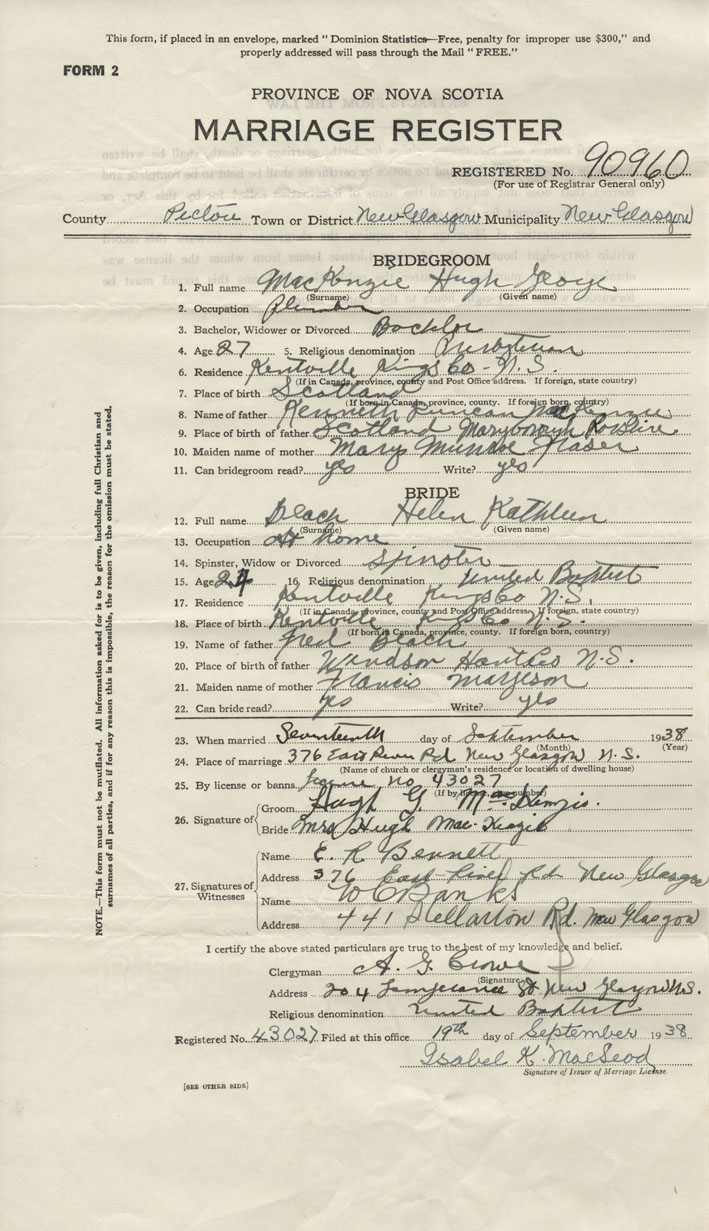 This form, if placed in an envelope, marked "Dominion Statistics—Free, penalty for improper use $300," and
properly addressed will pass through the Mail "FREE."
FORM 2
PROVINCE OF NOVA SCOTIA
MARRIAGE REGISTER
REGISTERED No. 90960
(For use of Registrar General only)
County Pictou Town or District New Glasgow Municipality New Glasgow
BRIDEGROOM
1. Full name MacKenzie Hugh George
(Surname) (Given name)
2. Occupation Plumber
3. Bachelor, Widower or Divorced Bachlor
4. Age 27 5. Religious denomination Presbyterian
6. Residence Kentville Kings Co - N.S.
(If in Canada, province, county and Post Office address. If foreign, state country)
7. Place of birth Scotland
(If born in Canada, province, county. If foreign born, country)
8. Name of father Kenneth Duncan MacKenzie
9. Place of birth of father Scotland Maryborough
10. Maiden name of mother Mary Munroe Fraser
11. Can bridegroom read? yes Write? yes
BRIDE
12. Full name Beach Helen Kathleen
(Surname) (Given name)
13. Occupation At home
14. Spinster, Widow or Divorced Spinster
15. Age 24 16. Religious denomination United Baptist
17. Residence Kentville Kings Co N.S.
(If in Canada, province, county and Post Office address, if foreign, state country)
18. Place of birth Kentville Kings Co N.S.
(If born in Canada, province, county. If foreign born, country)
19. Name of father Fred Beach
20. Place of birth of father Windsor Hants Co N.S.
21. Maiden name of mother Francis
22. Can bride read? yes Write? yes
23. When married Seventeenth day of September 1938
(Month) (Year)
24. Place of marriage 376 East River Rd New Glasgow N.S.
(Name of church or clergyman's residence or location of dwelling house)
25. By license or banns license no 43027
(If by license, number)
26. Signature of Groom Hugh G. MacKenzie.
Bride Mrs Hugh MacKenzie
27. Signatures of Witnesses
Name E. R. Bennett
Address 376 East River Rd New Glasgow
Name W C Banks
Address 441 Stellarton Rd. New Glasgow
I certify the above stated particulars are true to the best of my knowledge and belief.
Clergyman A. G. Crowe
(Signature)
Address 204 Temperance St New Glasgow N.S.
Religious denomination United Baptist
Registered No. 43027 Filed at this office 19th day of September 1938
Isabel K. MacLeod
Signature of Issuer of Marriage License
[SEE OTHER SIDE]
NOTE.—This form must not be mutilated. All information asked for is to be given, including full Christian and
surnames of all parties, and if for any reason this is impossible, the reason for the omission must be stated.